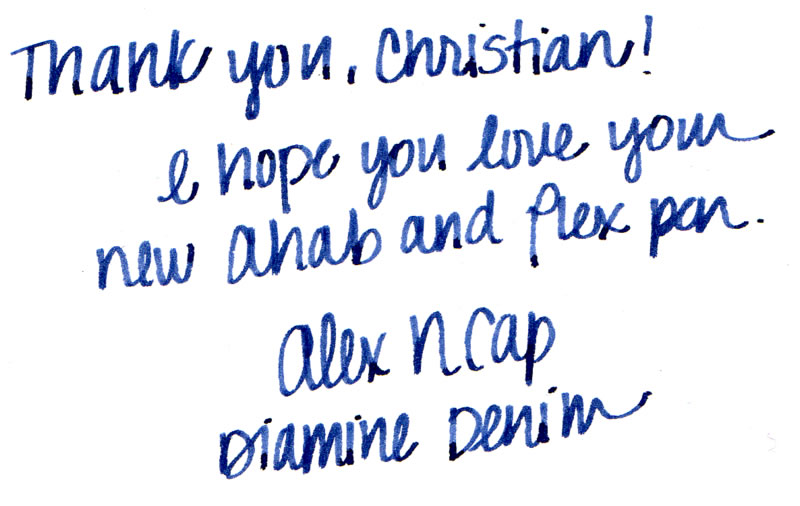 Thank you, Christian!
I hope you love your
new Ahab and flex pen.
Alex N Cap
Diamine Denim